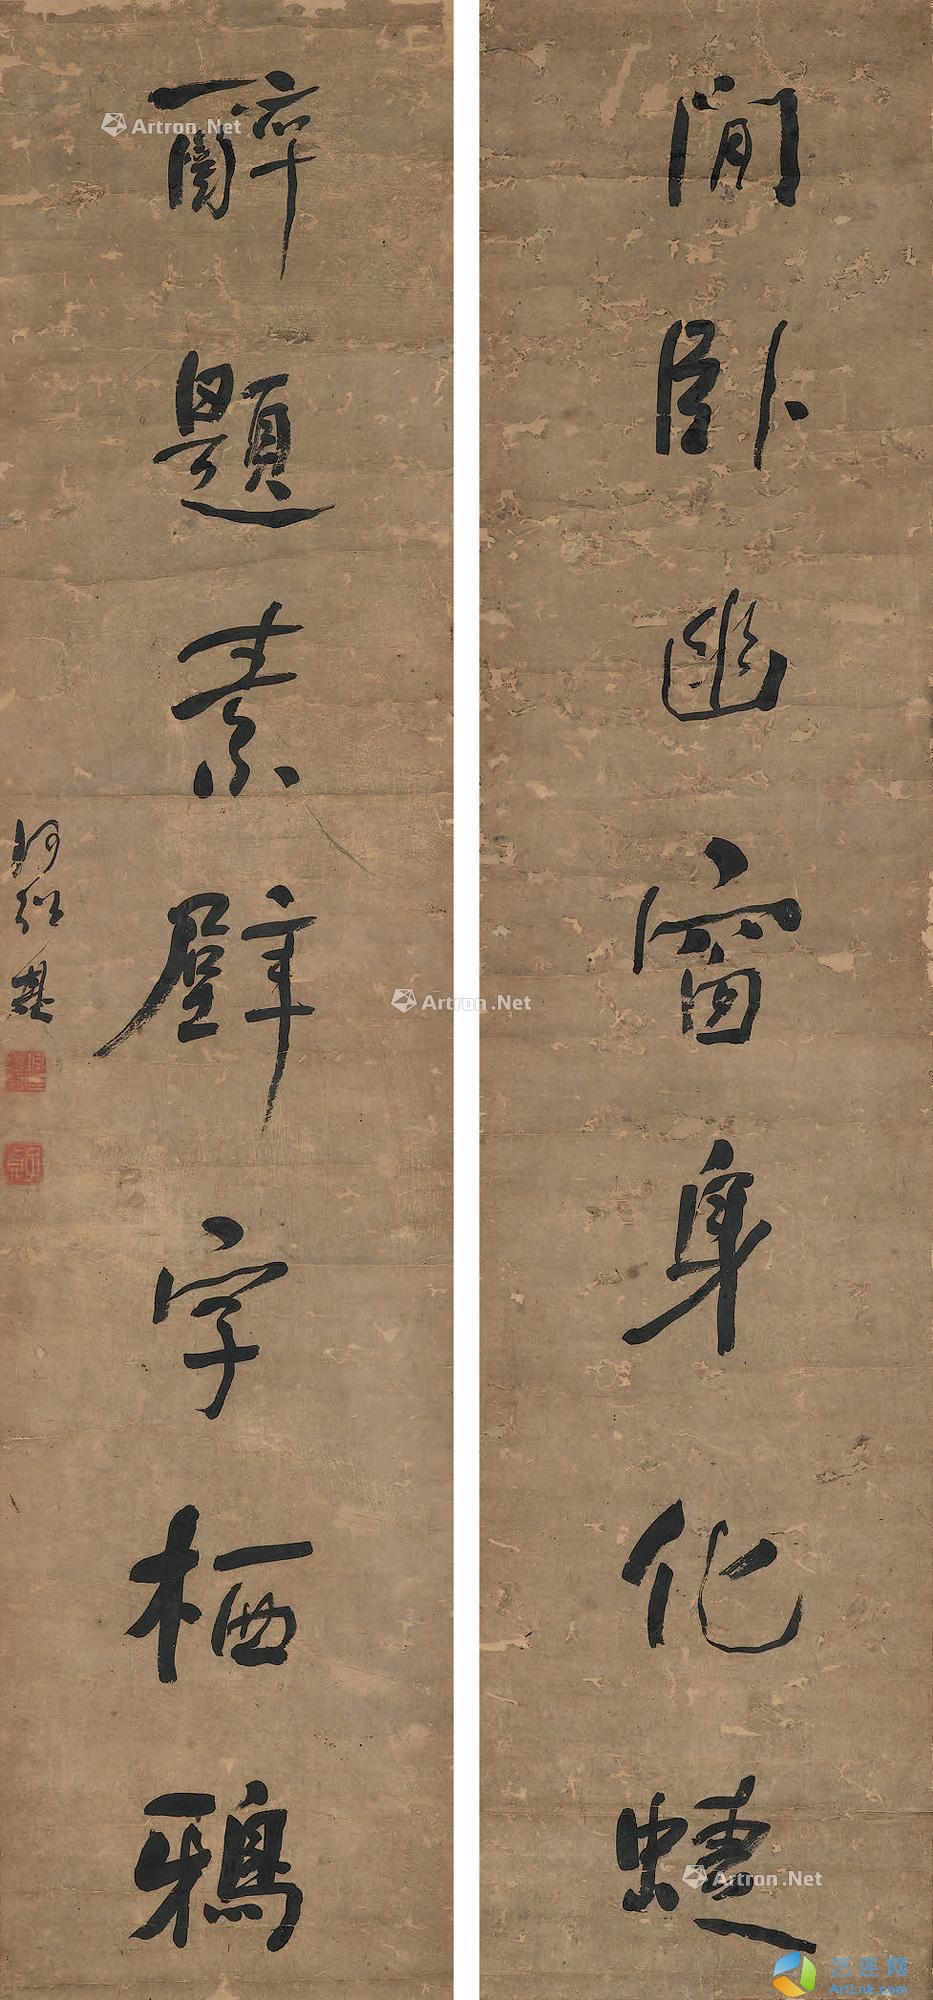 閒卧幽窗身化蜨
醉題素壁字栖鴉
何紹基
Artron.Net
Artron.Net
Artron.Net
艺连网
ArtLink.com